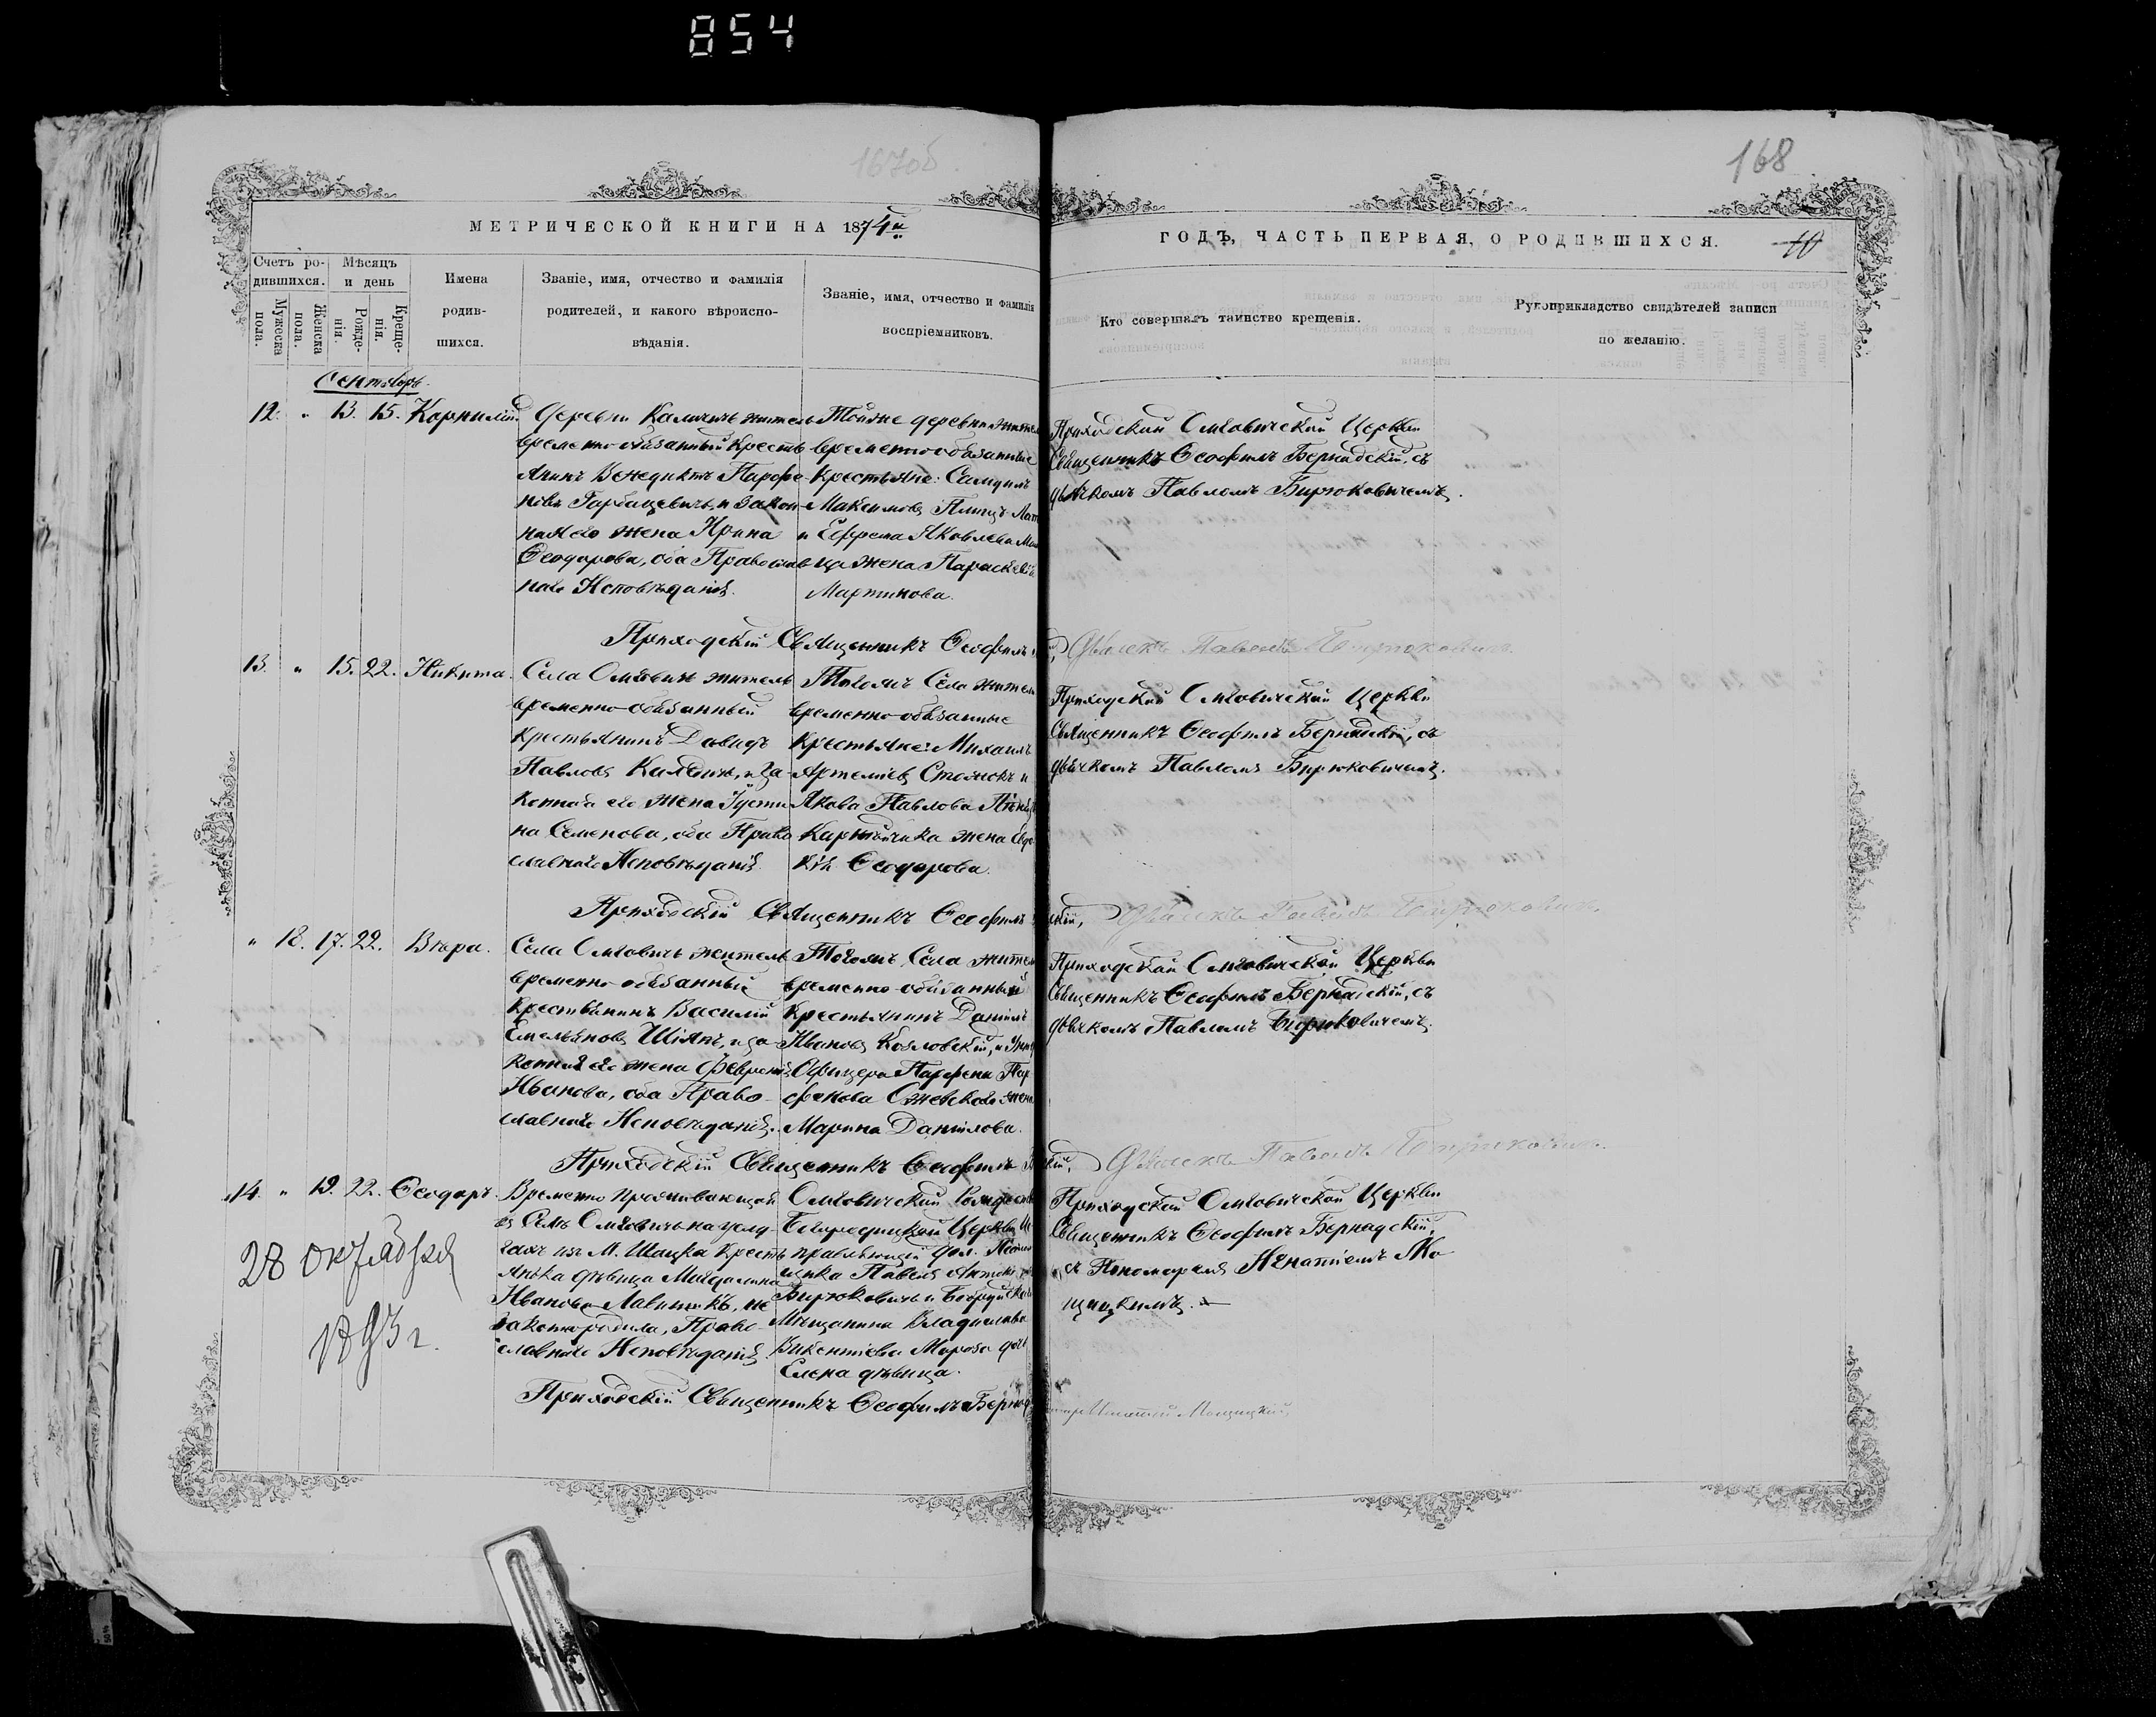 854
167об
168
МЕТРИЧЕСКОЙ КНИГИ НА 1874й
ГОДЪ, ЧАСТЬ ПЕРВАЯ, О РОДИВШИХСЯ.
10
Счетъ ро-
дившихся.
Мѣсяцъ
и день
Мужеска
пола.
Женска
пола.
Рожде-
нія.
Креще-
нія.
Имена
родив-
шихся.
Званіе, имя, отчество и фамилія
родителей, и какого вѣроиспо-
вѣданія.
Званіе, имя, отчество и фамилія
воспріемниковъ.
Кто совершалъ таинство крещенія.
Рукоприкладство свидѣтелей записи
по желанію.
Сентябрь
12. " 13. 15. Корнилій.
Деревни житель
временно обязанный кресть-
янинъ Венедиктъ Парфе-
новъ Горбацевичъ, и закон-
ная его жена Ирина
Ѳеодорова, оба Православ-
наго Исповѣданія.
Тойже деревни
временно обязанные
крестьяне: Самуилъ
Максимовъ
и Ефрема Яковлева
жена Параскева
Мартинова.
Приходской Омговичской Церкви
Священникъ Ѳеофилъ Бернадскій, съ
дьячкомъ Павломъ Бирюковичемъ.
Приходскій Священникъ Ѳеофилъ
Дьячекъ Павелъ Бирюковичъ.
13. " 15. 22. Никита.
Села Омговичъ житель
временно-обязанный
крестьянинъ Давидъ
Павловъ и за-
конная его жена Іусти-
на Семенова, оба Право-
славнаго Исповѣданія.
Тогожъ Села
временно-обязанные
крестьяне: Михаилъ
Артеміевъ и
Якова Павлова
жена Евдо-
кія Ѳеодорова.
Приходской Омговичской Церкви
Священникъ Ѳеофилъ Бернадскій, съ
дьячкомъ Павломъ Бирюковичемъ.
Приходскій Священникъ Ѳеофилъ
скій, Дьячекъ Павелъ Бирюковичъ.
" 18. 17. 22. Вѣра.
Села Омговичъ житель
временно-обязанный
крестьянинъ Василій
Емельяновъ и за-
конная его жена Февронія
Иванова, оба Право-
славнаго Исповѣданія.
Тогожъ Села
временно-обязанный
крестьянинъ Даніилъ
Ивановъ Козловскій, и
Офицера Парфена Пар-
фенова жена
Марина Даніилова.
Приходской Омговичской Церкви
Священникъ Ѳеофилъ Бернадскій, съ
дьячкомъ Павломъ Бирюковичемъ.
Приходскій Священникъ Ѳеофилъ
Дьячекъ Павелъ Бирюковичъ.
14. " 19. 22. Ѳеодоръ.
Временно проживающая
въ Селѣ Омговичъ на услу-
гахъ изъ М. Шацка кресть-
янка дѣвица Магдалина
Иванова не-
законнородила, Право-
славнаго Исповѣданія.
Омговичской Рождество-
Богородицкой Церкви
правляющій дол.
Павелъ
Бирюковичъ и Бобруйскаго
Мѣщанина Владислава
Викентіева Мороза дочь
Елена дѣвица.
Приходской Омговичской Церкви
Священникъ Ѳеофилъ Бернадскій,
съ Пономаремъ Игнатіемъ Мо-
щицкимъ.
28 октября
1893 г.
Приходскій Священникъ Ѳеофилъ Бернад
Игнатій Мощицкій.